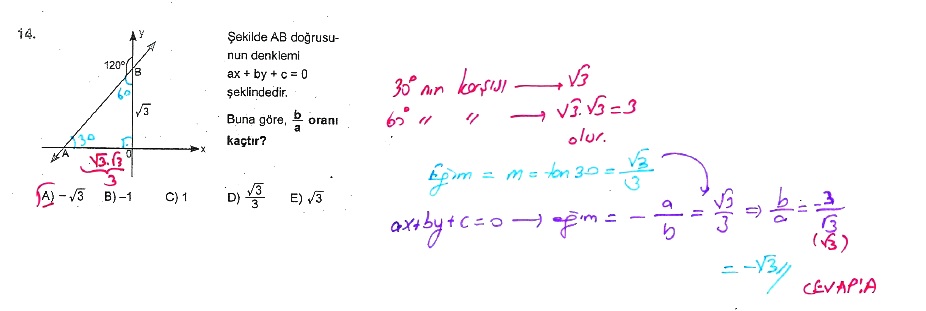 14.
y
120°
B
60
√3
30
A
0
x
√3.√3
3
Şekilde AB doğrusu-
nun denklemi
ax + by + c = 0
şeklindedir.
Buna göre, b/a oranı
kaçtır?
A) -√3 B) -1 C) 1 D) √3/3 E) √3
30° nın karşısı → √3
60° " " → √3.√3 = 3
olur.
Eğim = m = tan 30 = √3/3
ax+by+c=0 → eğim = - a/b = √3/3 ⇒ b/a = -3/√3
(√3)
= -√3 //
CEVAP:A